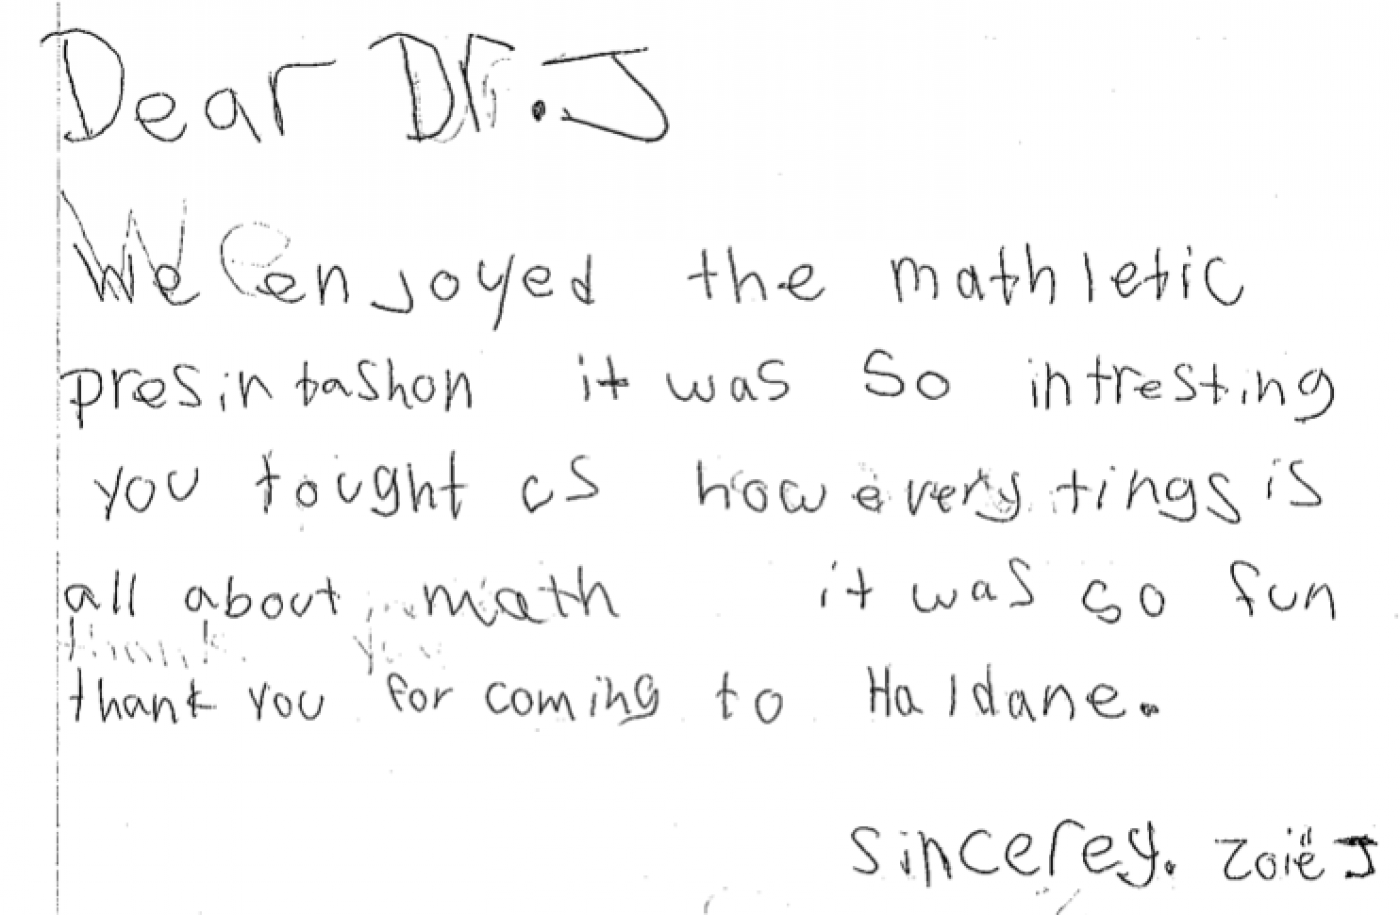 Dear Dr. J
We enjoyed the mathletic
presintashon it was so intresting
you tought us how every tings is
all about math it was so fun
thank you
thank you for coming to Haldane.
Sincerey. Zoië J